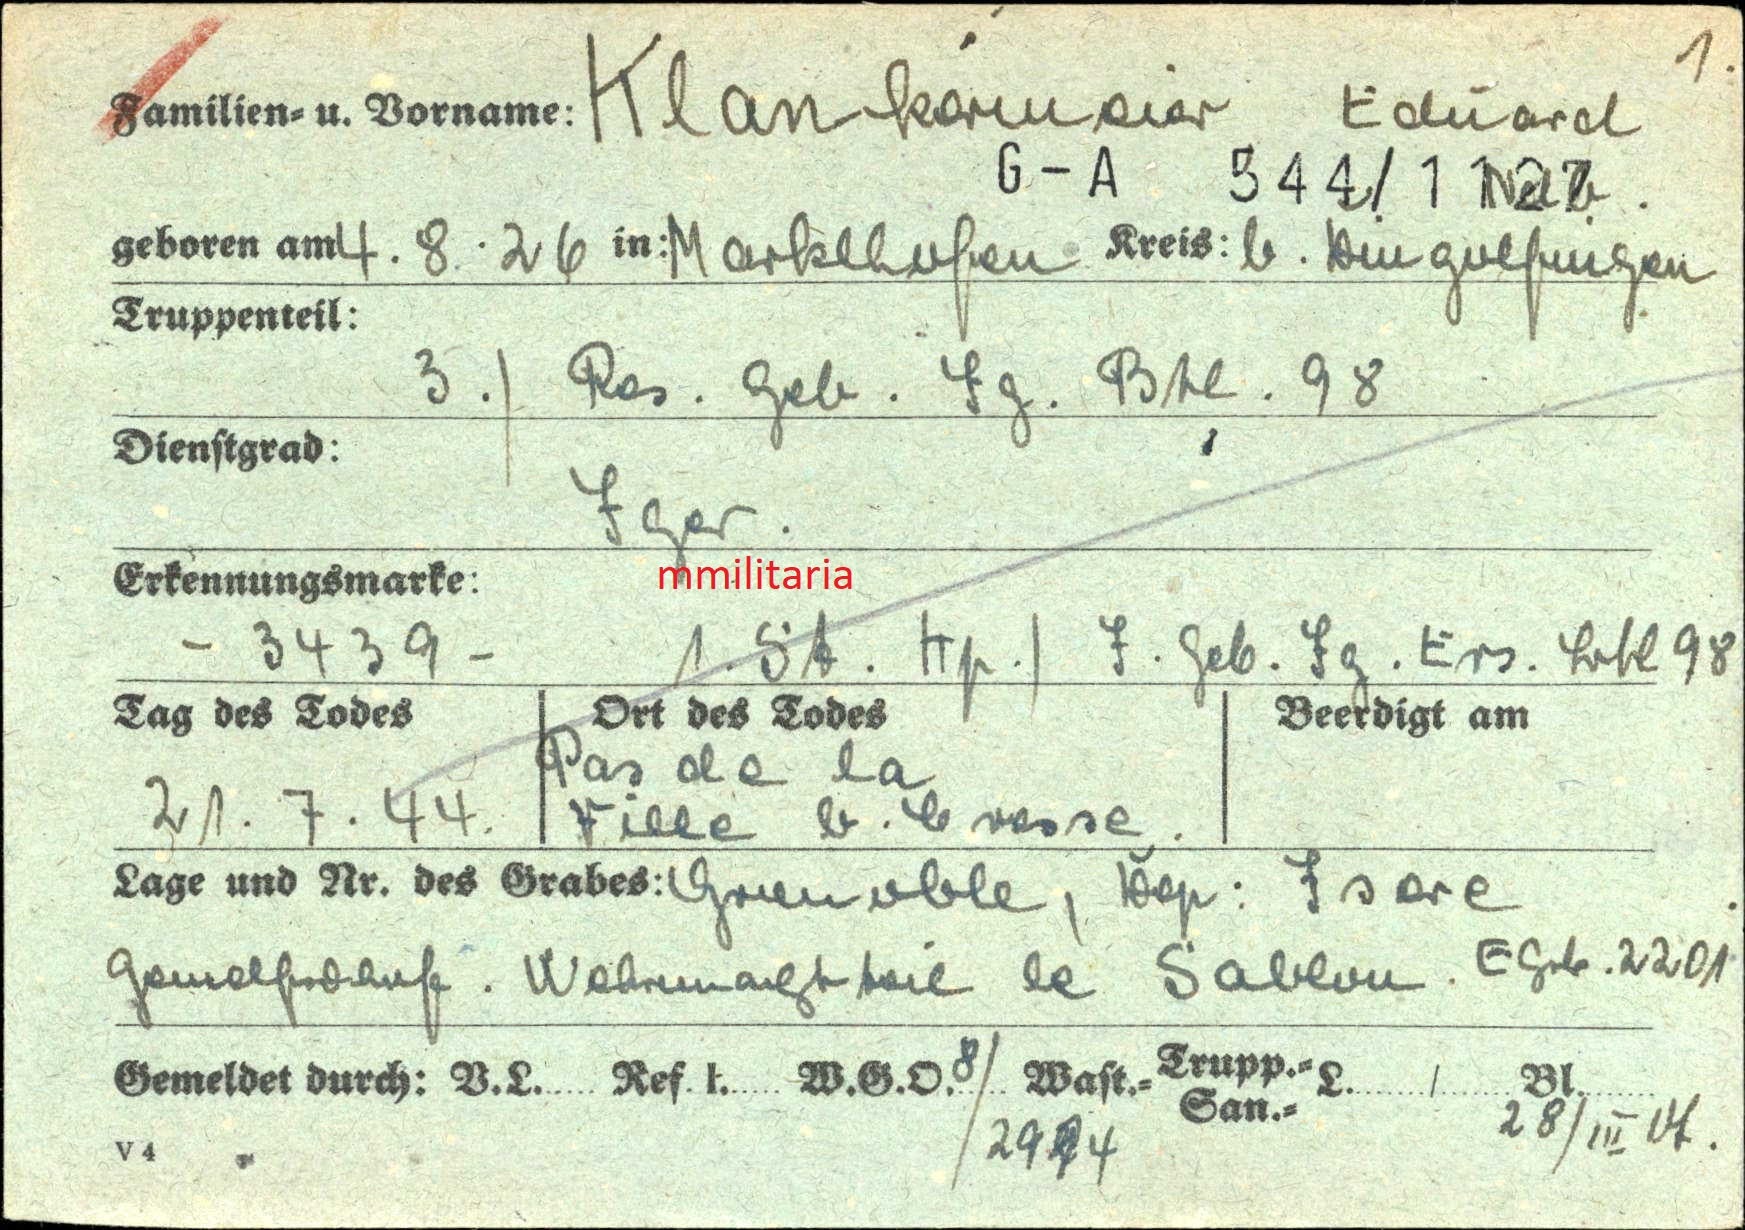 1.
Familien- u. Vorname: Klankermeier Eduard
G-A 544/1127
geboren am 4.8.26 in: Marklkofen Kreis: b. Dingolfingen
Truppenteil:
3./ Res. Geb. Jg. Btl. 98
Dienstgrad:
Jger.
Erkennungsmarke:
mmilitaria
- 3439 - 1. St. Kp./ J. Geb. Jg. Ers. Btl 98
Tag des Todes Ort des Todes Beerdigt am
Pas de la
21.7.44. Ville b. Cresse.
Lage und Nr. des Grabes: Grenoble, Dep: Isere
Wehrmachtteil le Sablon. EGrb. 2201
Gemeldet durch: V.L. Ref. 1. W.G.O. 8/ Wast.- Trupp.- San.- L. / Bl.
2944 28/III
V 4